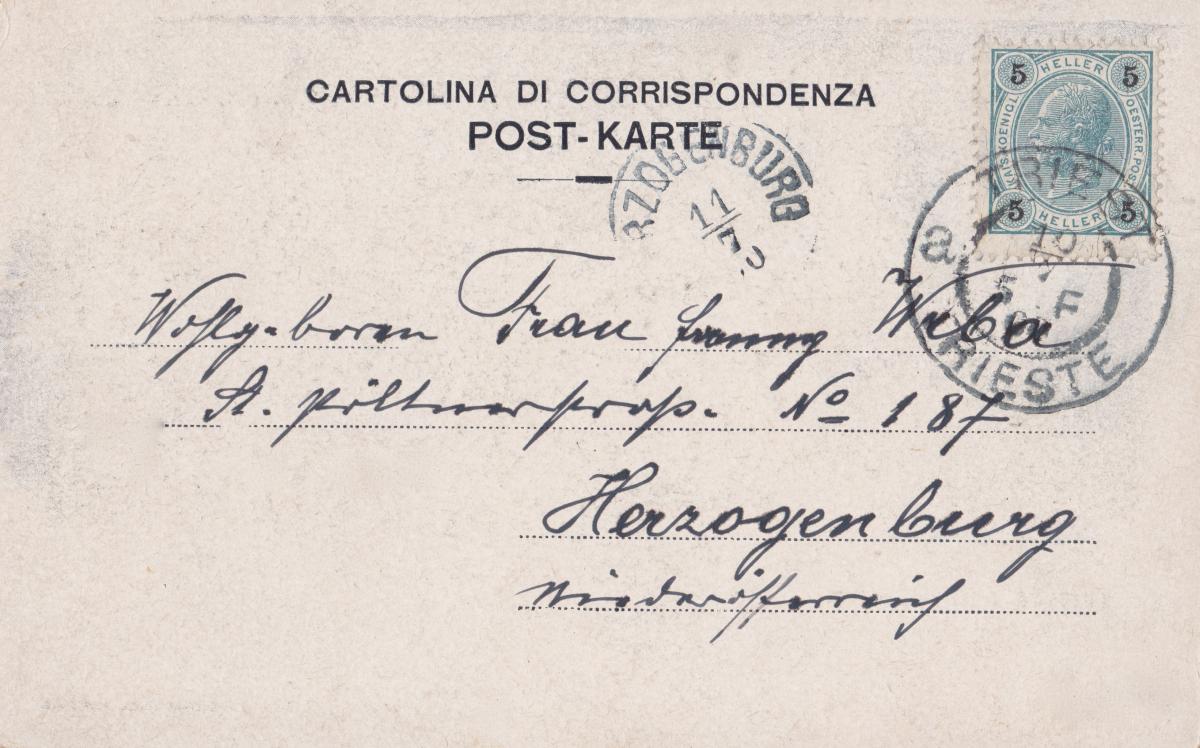 CARTOLINA DI CORRISPONDENZA
POST-KARTE
5 HELLER 5
KAIS. KOENIGL. OESTERR. POST
5 HELLER 5
RZOGENBURG
11/
a
10
5 F
TRIESTE
Wohlgeboren Frau Fanny Weba
St. Pöltnerstraße No 187
Herzogenburg
Niederösterreich